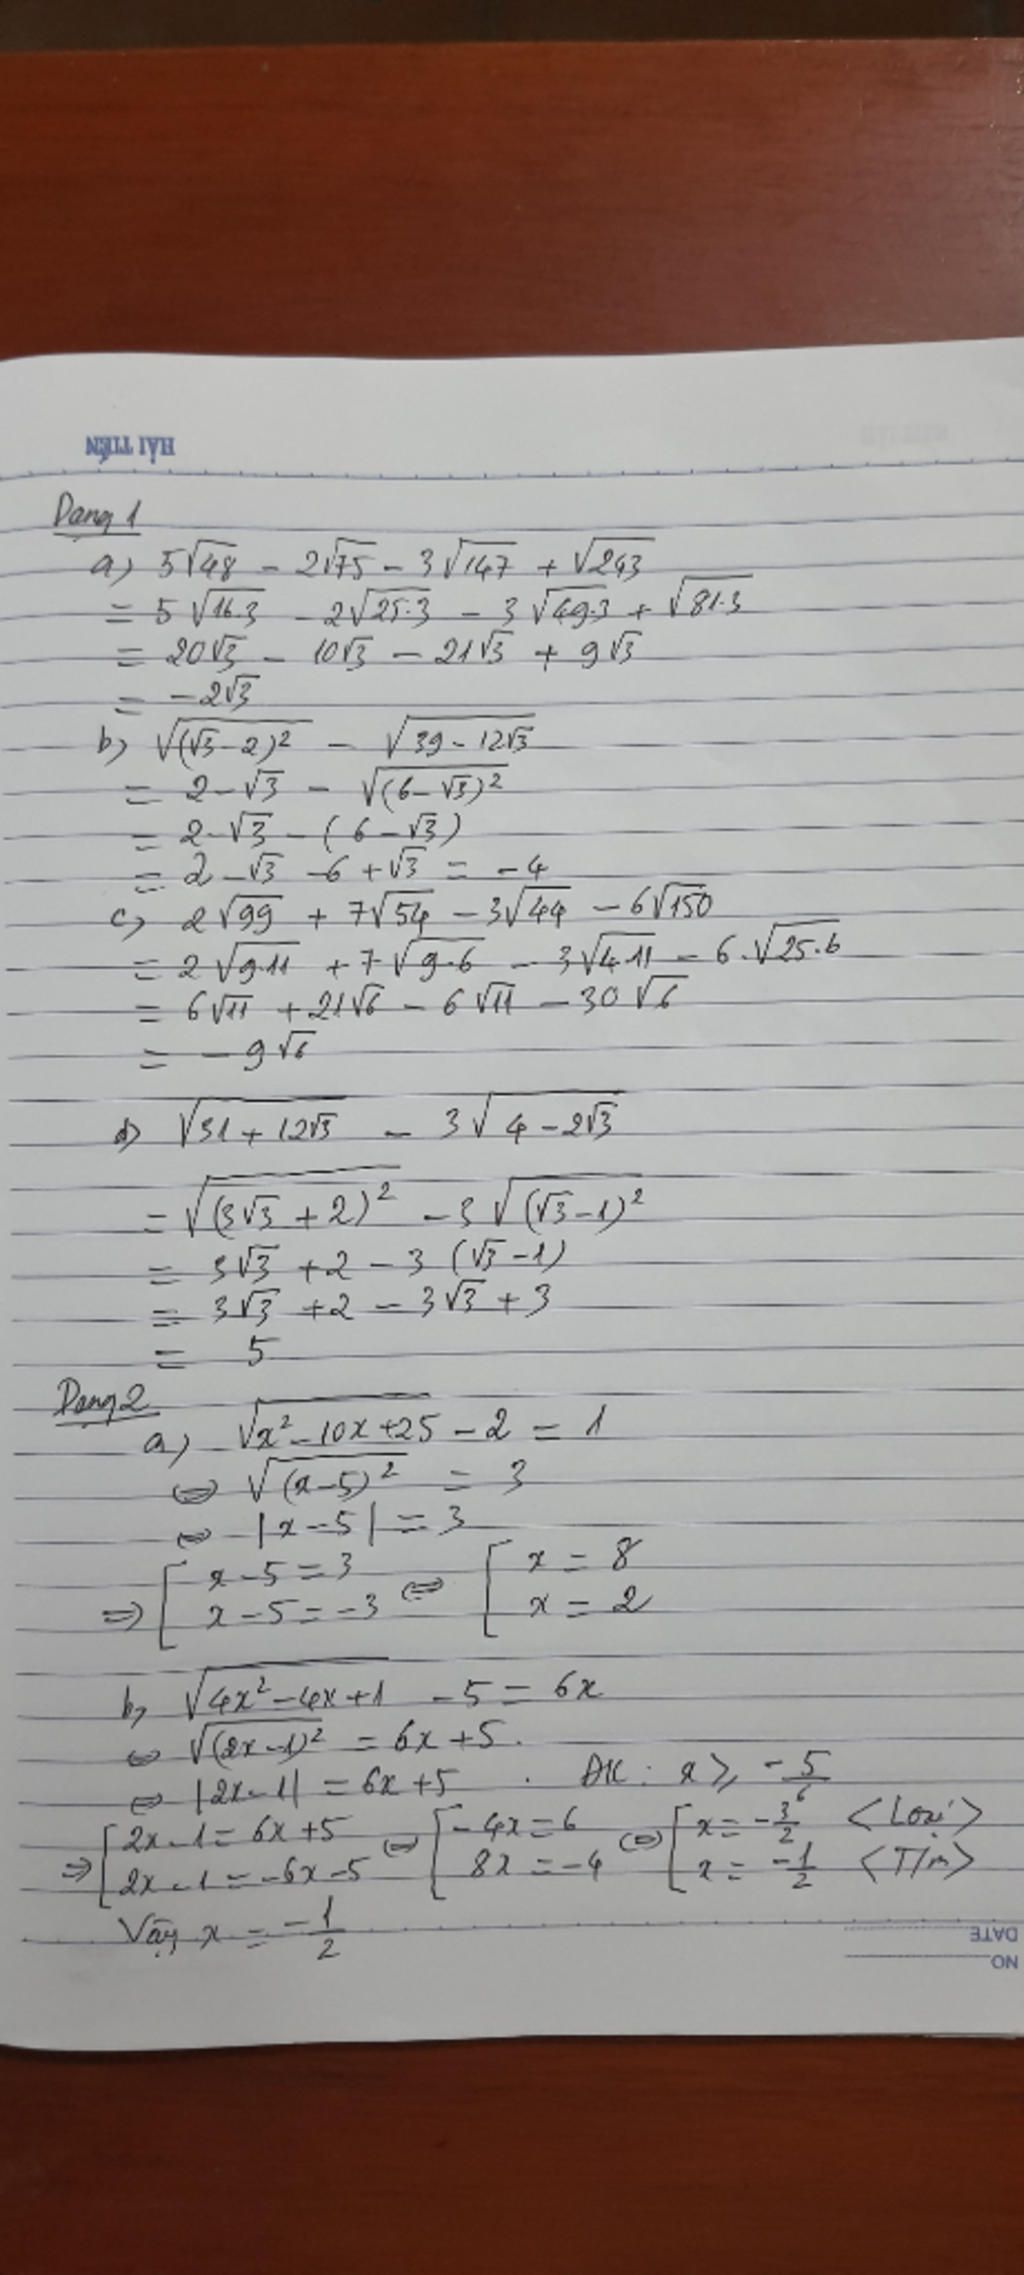 HẢI TIẾN
Dạng 1
a) 5√48 - 2√75 - 3√147 + √243
= 5√16.3 - 2√25.3 - 3√49.3 + √81.3
= 20√3 - 10√3 - 21√3 + 9√3
= -2√3
b) √(√3-2)² - √39-12√3
= 2-√3 - √(6-√3)²
= 2-√3 - (6-√3)
= 2-√3 -6+√3 = -4
c) 2√99 + 7√54 - 3√44 - 6√150
= 2√9.11 + 7√9.6 - 3√4.11 - 6.√25.6
= 6√11 + 21√6 - 6√11 - 30√6
= -9√6
d) √31+12√3 - 3√4-2√3
= √(3√3+2)² - 3√(√3-1)²
= 3√3 +2 - 3 (√3-1)
= 3√3 +2 - 3√3 + 3
= 5
Dạng 2
a) √x²-10x+25 - 2 = 1
⇔ √(x-5)² = 3
⇔ |x-5| = 3
⇒ [ x-5=3 ⇔ [ x = 8
x-5=-3 x = 2
b, √4x²-4x+1 -5 = 6x
⇔ √(2x-1)² = 6x+5.
⇔ |2x-1| = 6x+5 . ĐK: x ≥ -5/6
⇒ [ 2x-1=6x+5 ⇔ [ -4x=6 ⇔ [ x=-3/2 <Loại>
2x-1=-6x-5 8x=-4 x=-1/2 <T/m>
Vậy x = -1/2
DATE
NO